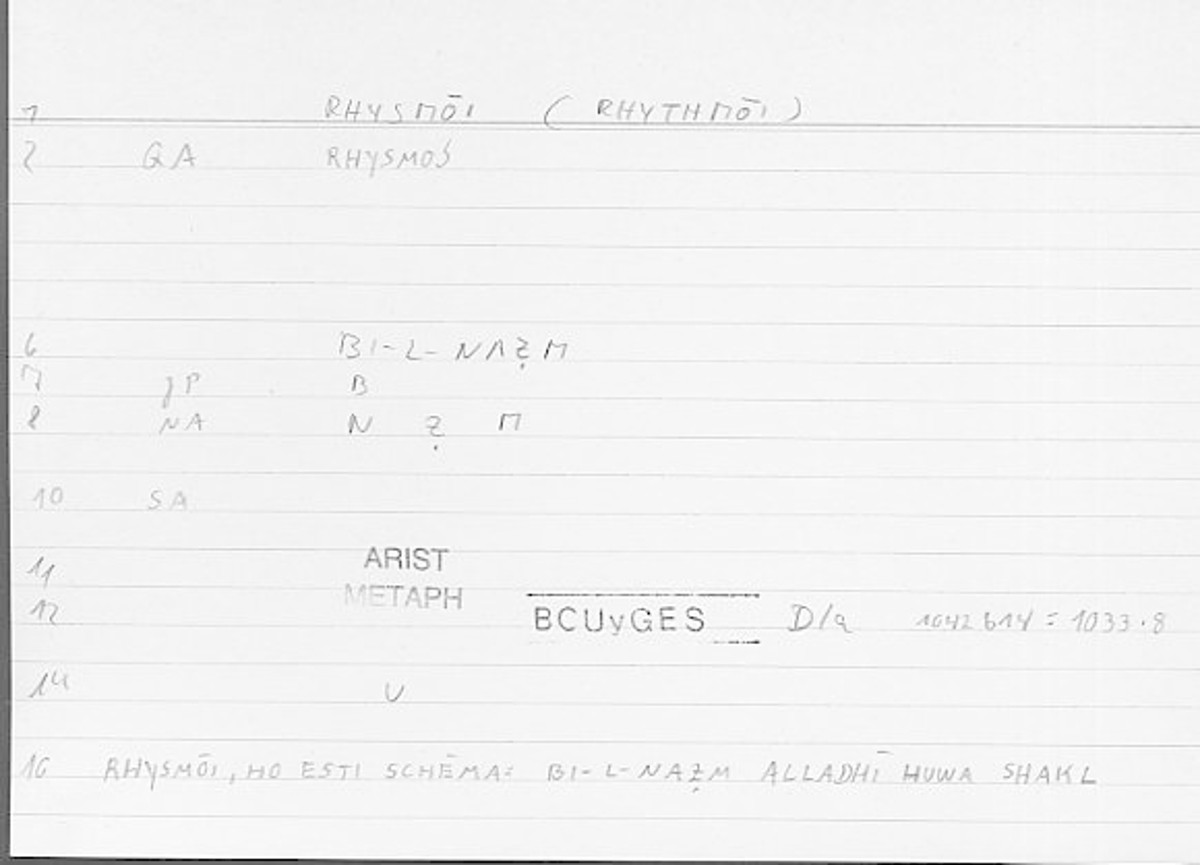 1 RHYSMŌI ( RHYTHMŌI )
2 GA RHYSMOS
6 BI-L-NAẒM
7 JP B
8 NA N Ẓ M
10 SA
11 ARIST
METAPH
12 BCUyGES D/a 1042 b14 = 1033.8
14 U
16 RHYSMŌI, HO ESTI SCHĒMA: BI-L-NAẒM ALLADHĪ HUWA SHAKL